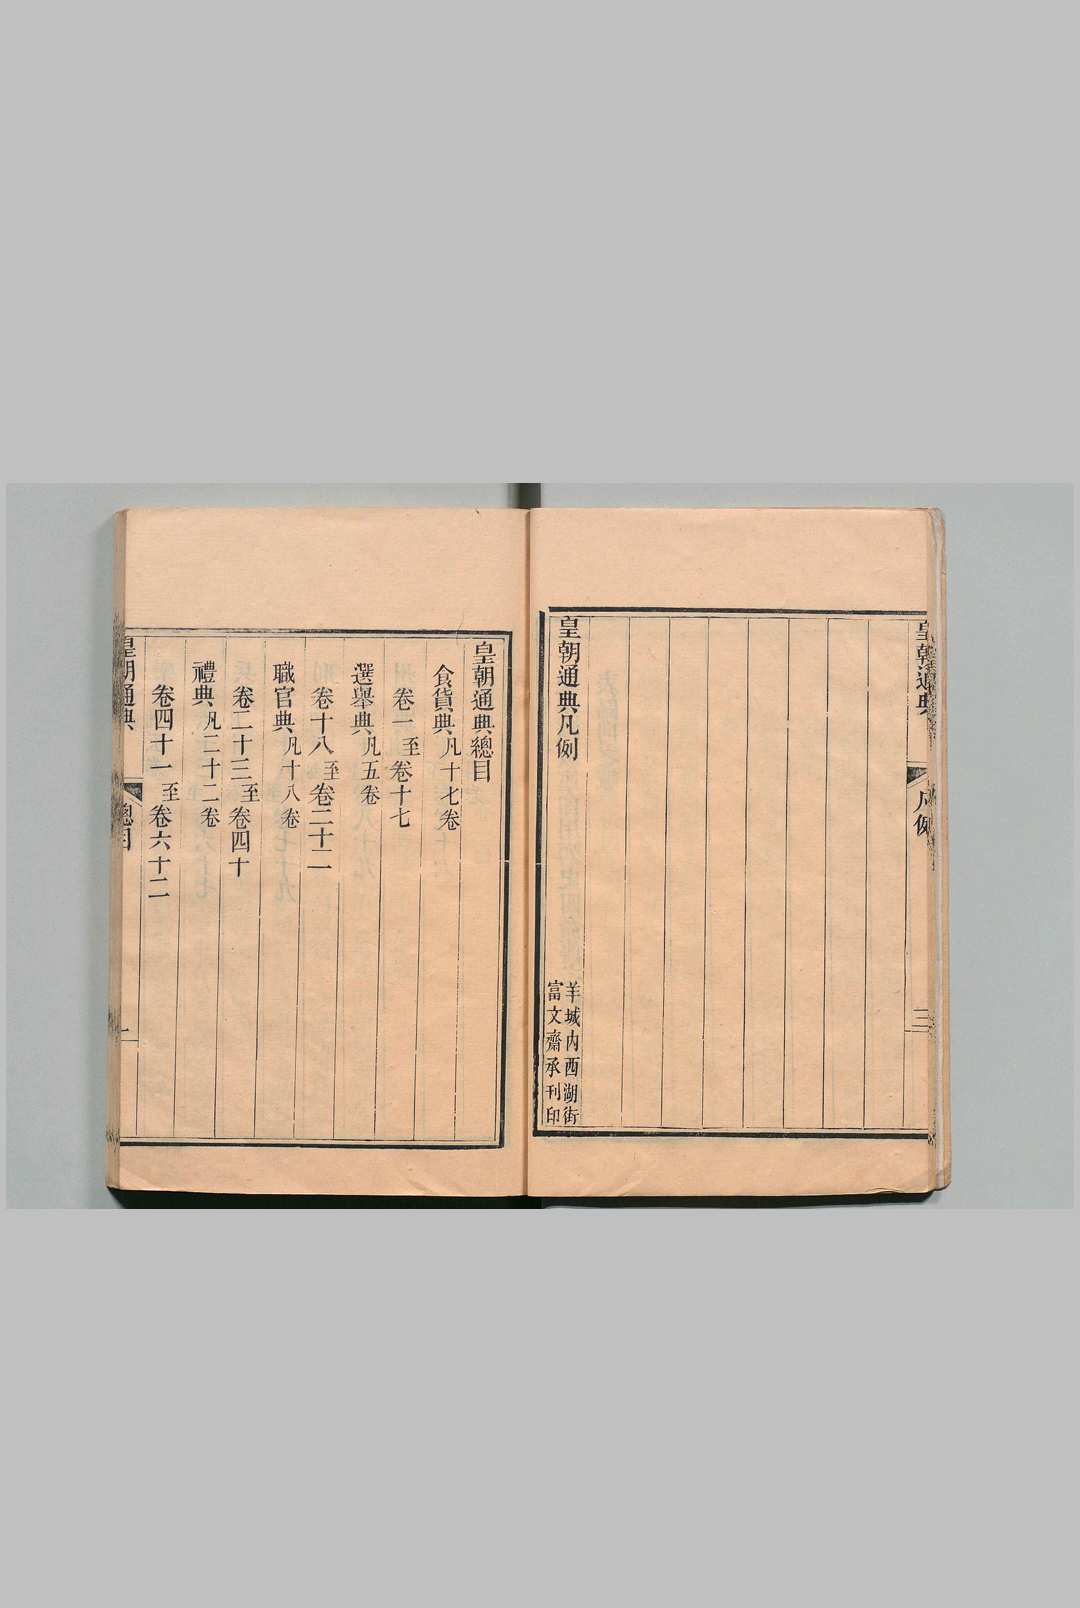 皇朝通典
凡例
三
皇朝通典凡例
羊城內西湖街
富文齋承刊印
皇朝通典總目
食貨典凡十七卷
卷一至卷十七
選舉典凡五卷
卷十八至卷二十二
職官典凡十八卷
卷二十三至卷四十
禮典凡二十二卷
卷四十一至卷六十二
皇朝通典
總目
一